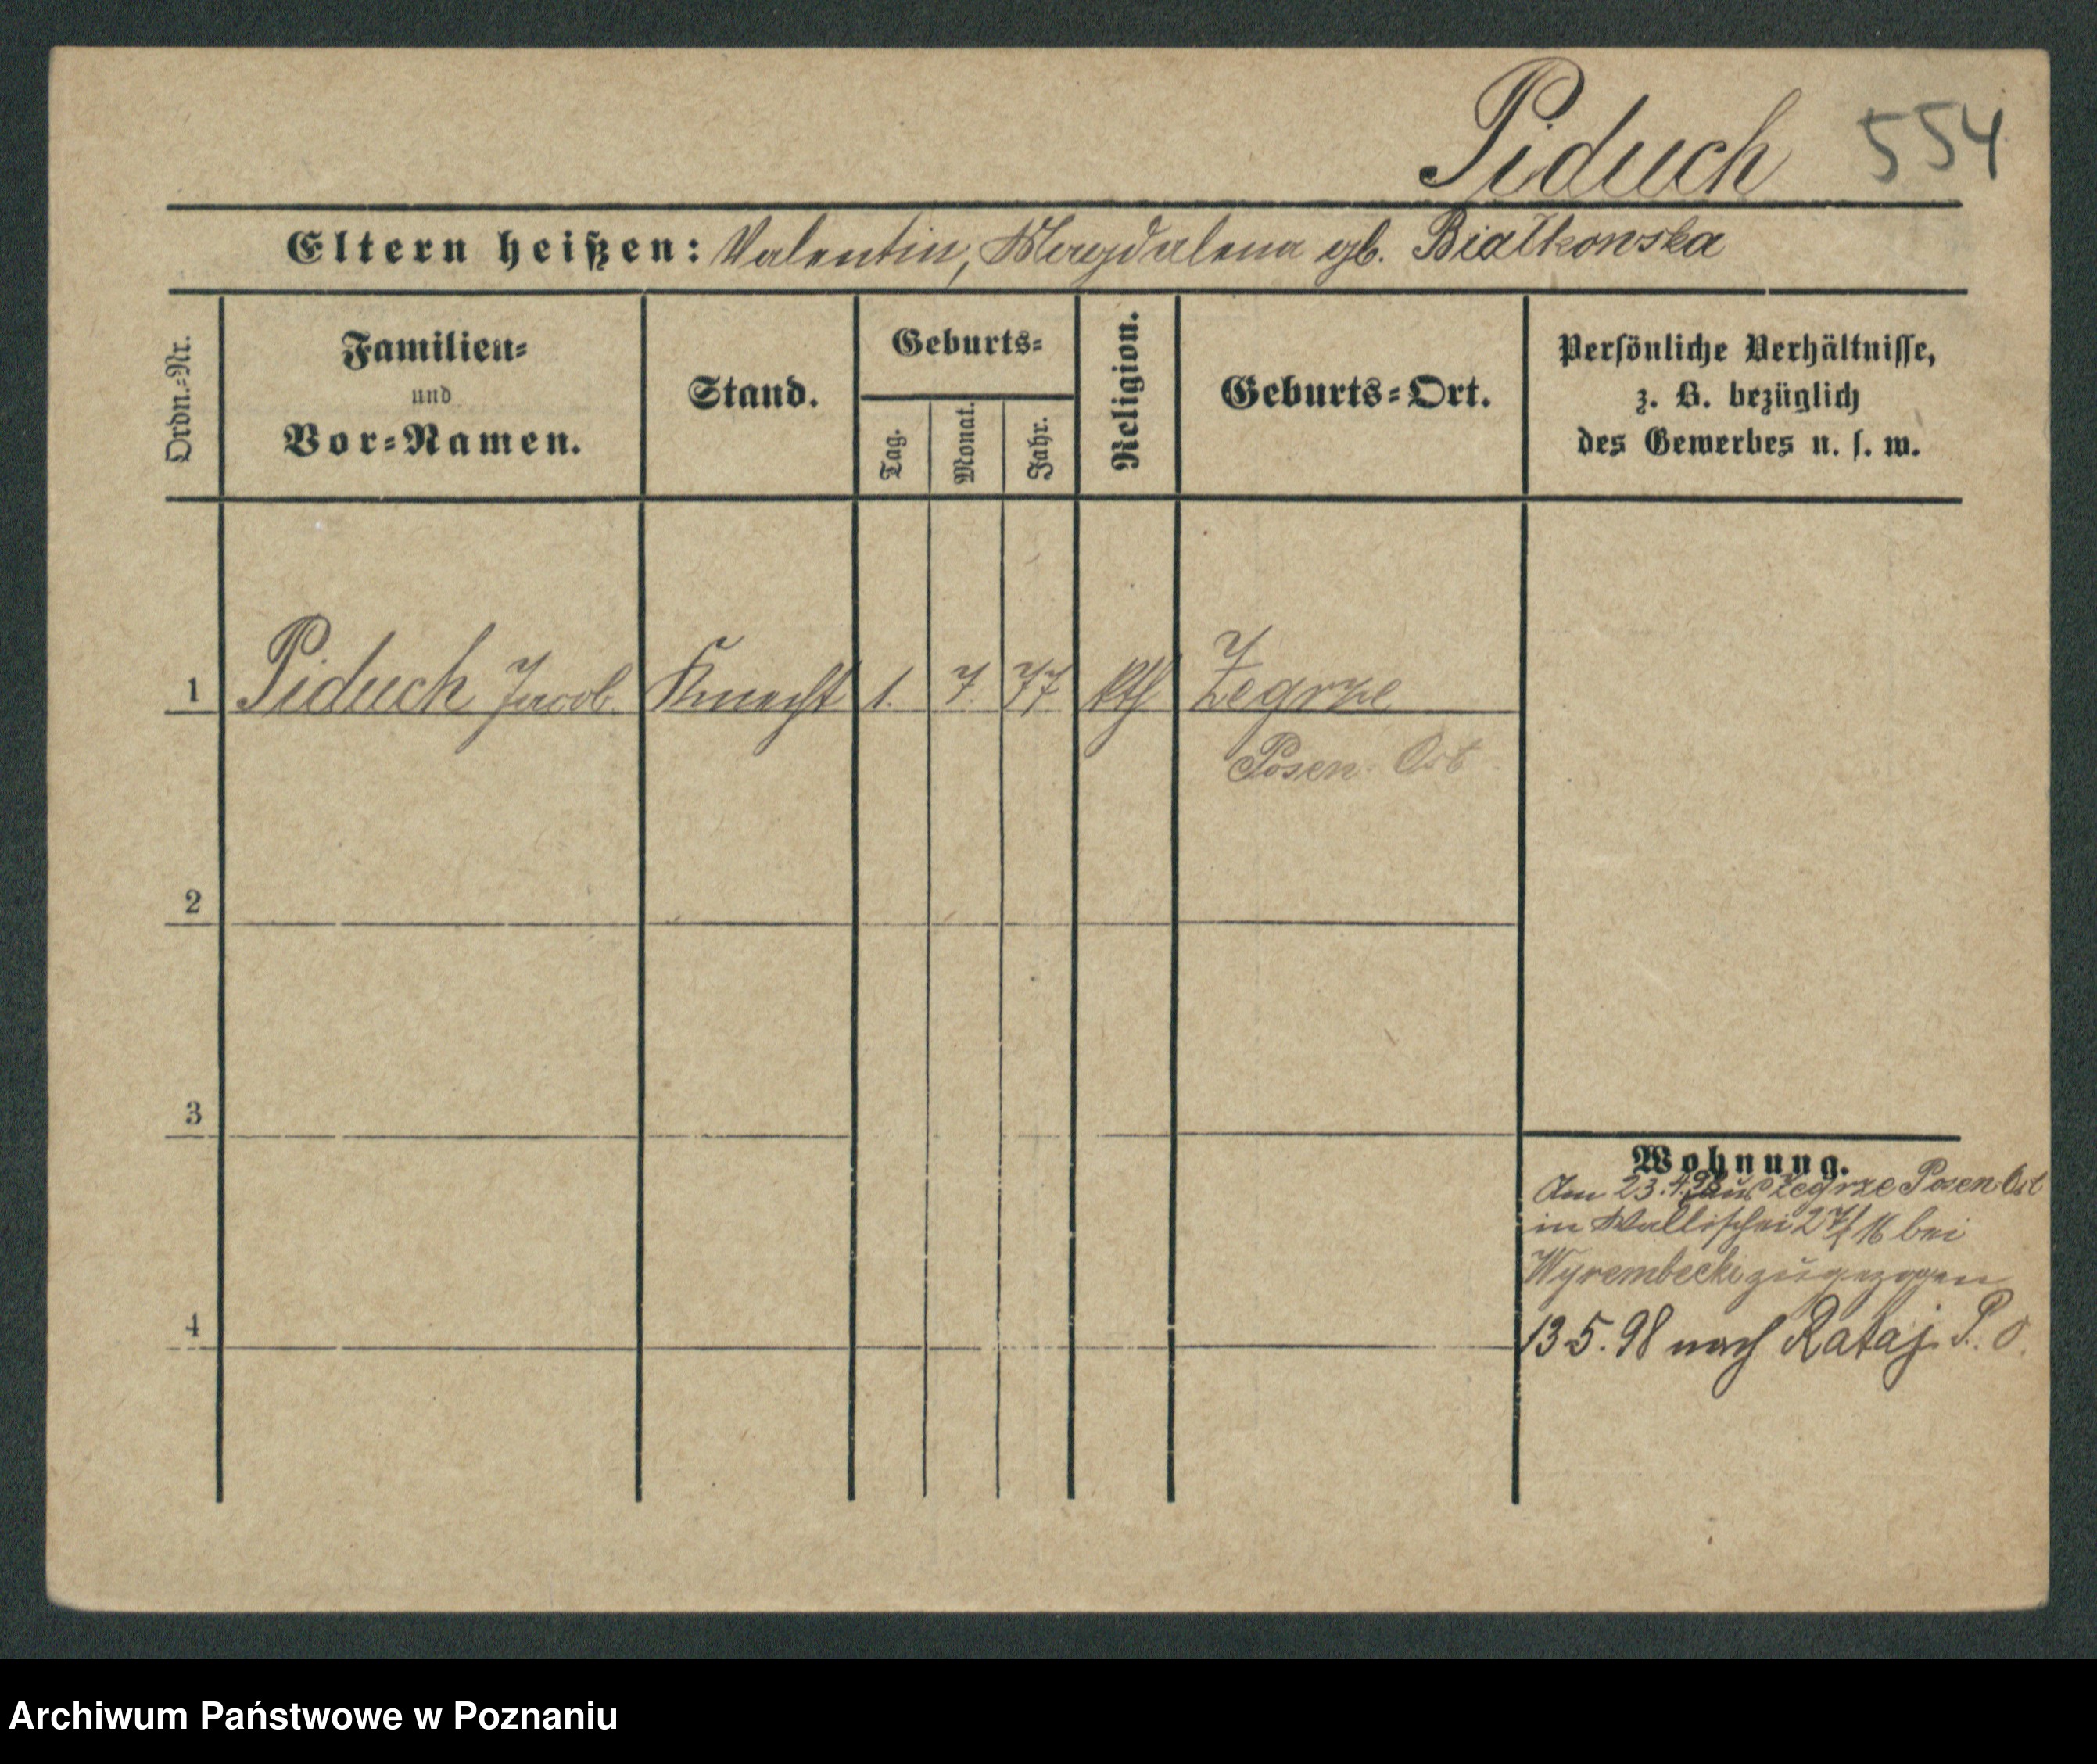 Piduch 554
Eltern heißen: Valentin, Magdalena gb. Białkowska
Ordn.-Nr.
Familien-
und
Vor-Namen.
Stand.
Geburts-
Tag.
Monat.
Jahr.
Religion.
Geburts-Ort.
Persönliche Verhältnisse,
z. B. bezüglich
des Gewerbes u. s. w.
1 Piduch Jacob Knecht 1. 7. 77 kth Zegrze
Posen Ost
2
3
4
Wohnung.
Am 23.4.98 aus Zegrze Posen Ost
in Wallischei 27/16 bei
Wyrembecki zugezogen
13.5.98 nach Rataj P. O.
Archiwum Państwowe w Poznaniu